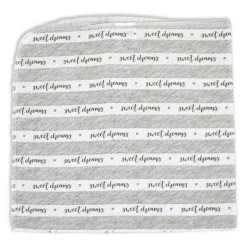 sweet dreams sweet dreams
sweet dreams sweet dreams sweet dreams
sweet dreams sweet dreams
sweet dreams sweet dreams sweet dreams
sweet dreams sweet dreams
sweet dreams sweet dreams sweet dreams
sweet dreams sweet dreams
sweet dreams sweet dreams sweet dreams